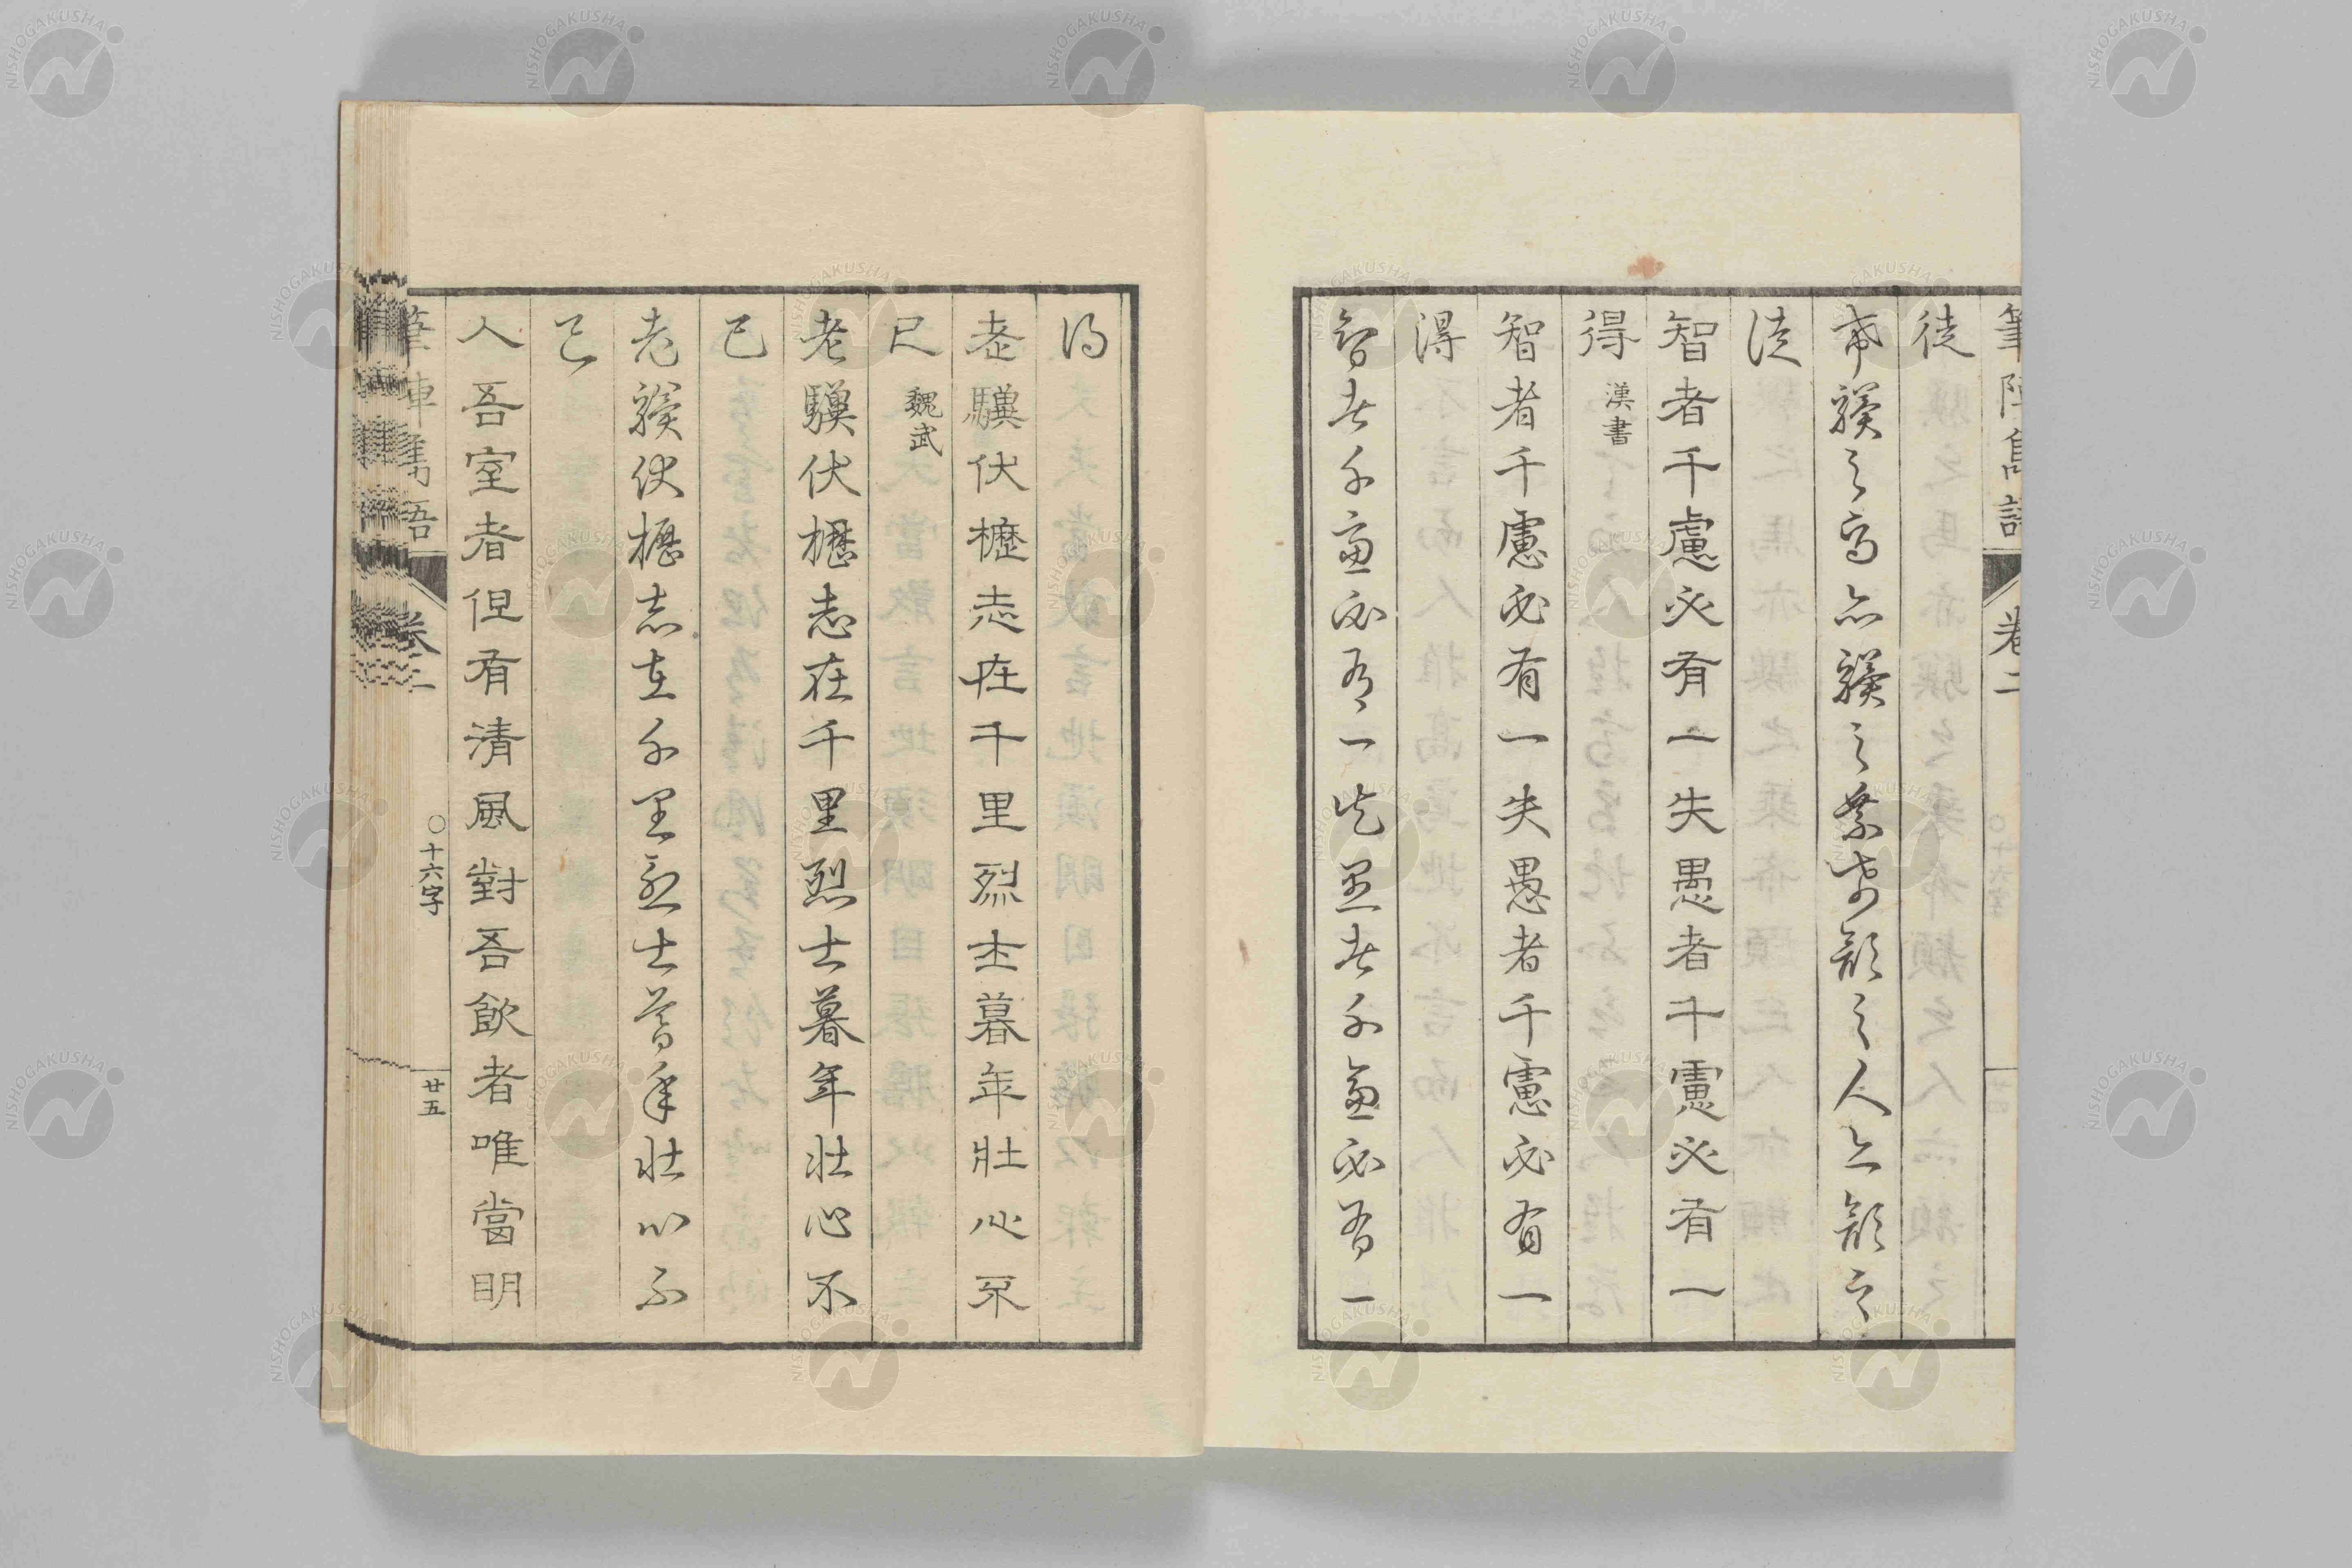 筆陣雋語 卷二
徒
希驥之馬亦驥之乘希顔之人亦顔之
徒
智者千慮必有一失愚者千慮必有一
得 漢書
智者千慮必有一失愚者千慮必有一
得
智者千慮必有一失愚者千慮必有一
得
老驥伏櫪志在千里烈士暮年壯心不
已 魏武
老驥伏櫪志在千里烈士暮年壯心不
已
老驥伏櫪志在千里烈士暮年壯心不
已
入吾室者但有清風對吾飲者唯當明
筆陣雋語 卷二 〇十六字 廿五
NISHOGAKUSHA